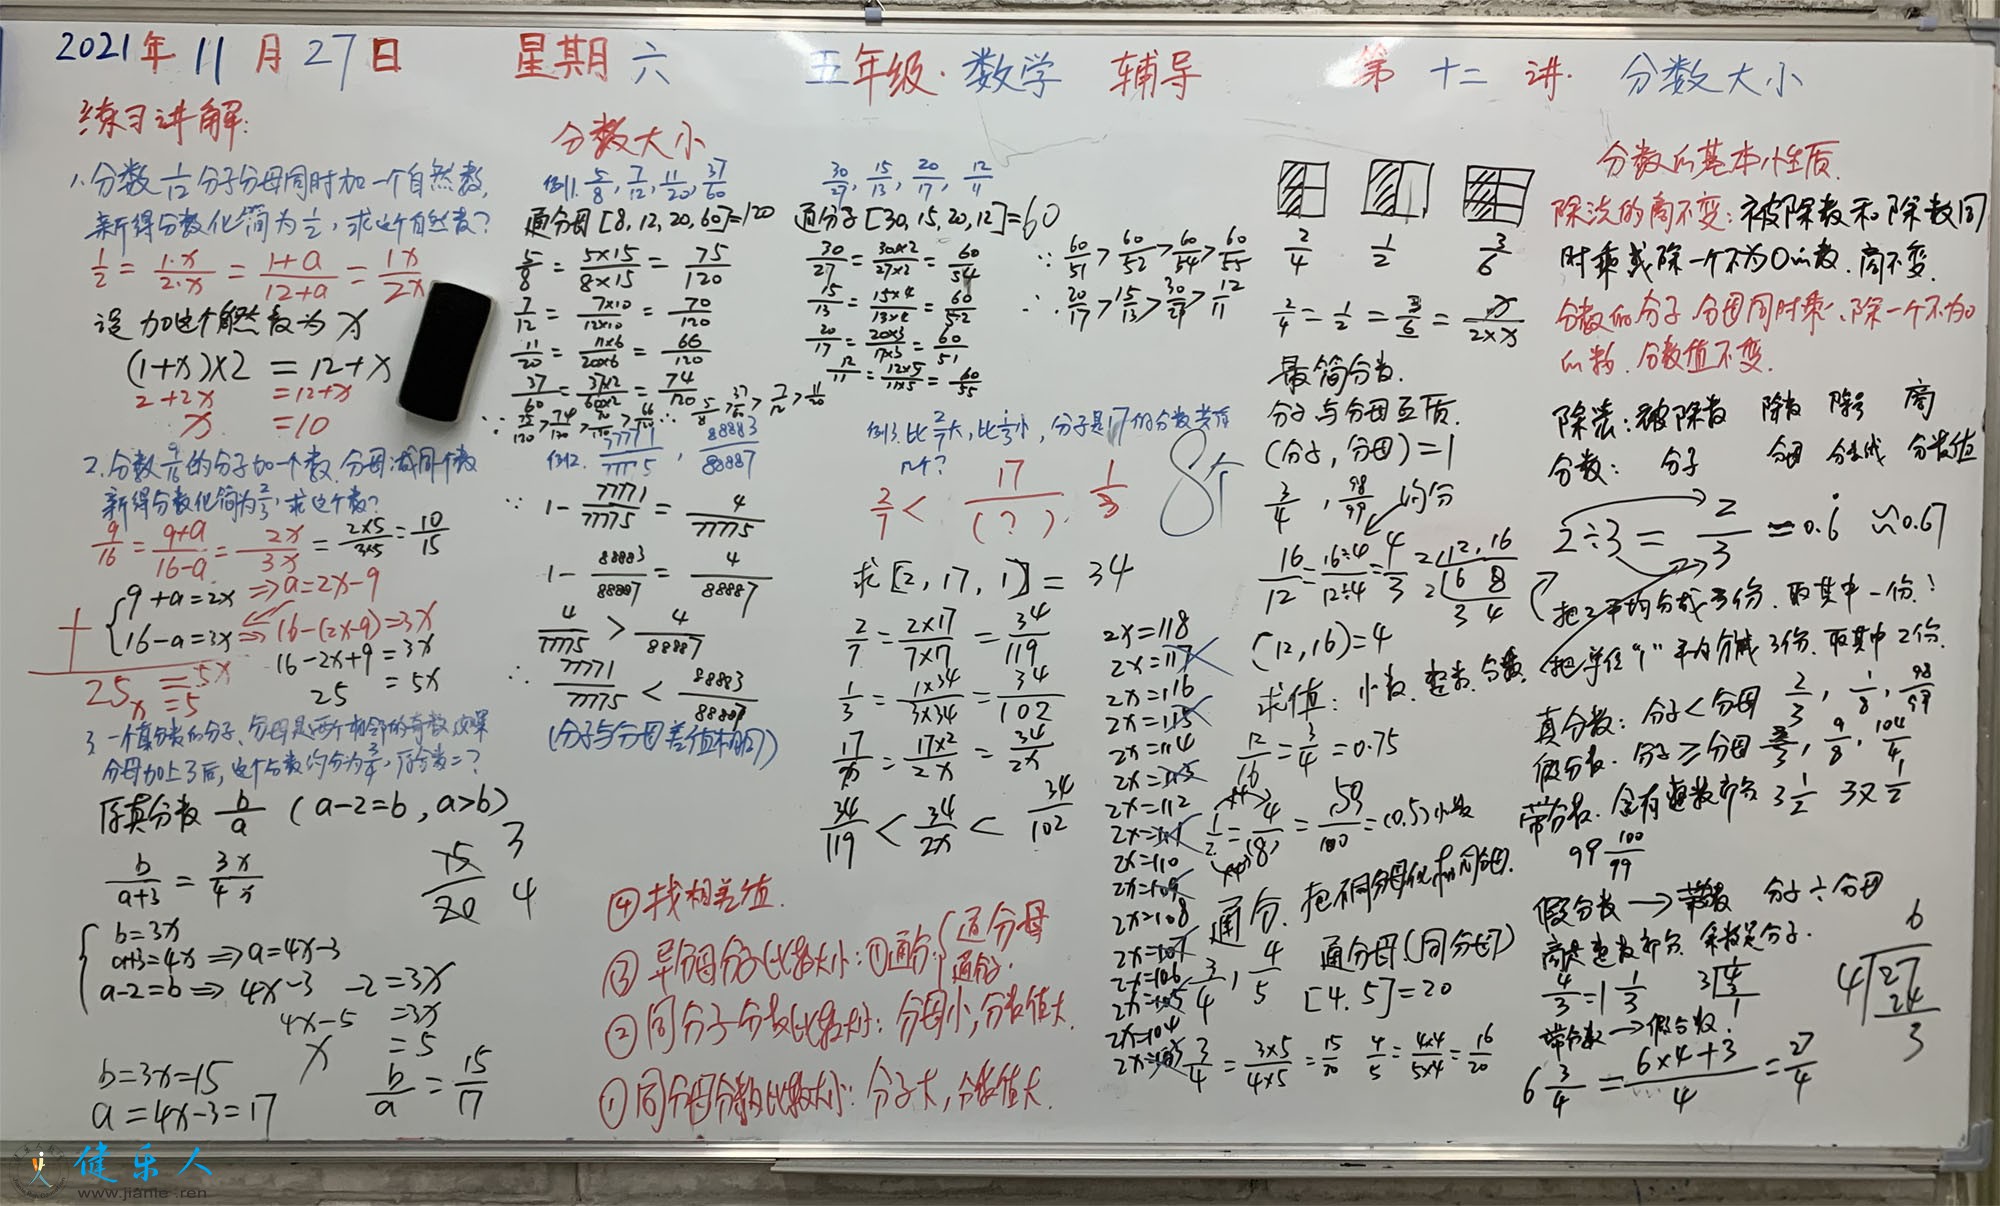 2021年11月27日 星期六 五年级·数学 辅导 第十二讲·分数大小
练习讲解:
1.分数1/12分子分母同时加一个自然数,
新得分数化简为1/2,求这个自然数?
1/2 = 1·x/2·x = 1+a/12+a = 1x/2x
设加这个自然数为x
(1+x)×2 = 12+x
2+2x = 12+x
x = 10
2.分数9/16的分子加一个数,分母减同个数
新得分数化简为2/3,求这个数?
9/16 = 9+a/16-a = 2x/3x = 2×5/3×5 = 10/15
9+a=2x ⇒ a=2x-9
16-a=3x ⇒ 16-(2x-9)=3x
16-2x+9 = 3x
25 = 5x
25 = 5x
x = 5
3.一个真分数的分子、分母是两个相邻的奇数,如果
分母加上3后,这个分数约分为3/4,原分数=?
原真分数 b/a (a-2=b, a>b)
b/a+3 = 3x/4x
15/20 3/4
b=3x
a+3=4x ⇒ a=4x-3
a-2=b ⇒ 4x-3 -2=3x
4x-5 =3x
x =5
b=3x=15
a=4x-3=17
b/a = 15/17
分数大小
例1. 5/8, 7/12, 11/20, 37/60
通分母[8,12,20,60]=120
5/8 = 5×15/8×15 = 75/120
7/12 = 7×10/12×10 = 70/120
11/20 = 11×6/20×6 = 66/120
37/60 = 37×2/60×2 = 74/120
∵ 75/120 > 74/120 > 70/120 > 66/120 ∴ 5/8 > 37/60 > 7/12 > 11/20
例2. 77771/77775, 88883/88887
∵ 1- 77771/77775 = 4/77775
1- 88883/88887 = 4/88887
4/77775 > 4/88887
∴ 77771/77775 < 88883/88887
(分子与分母差值相同)
④找相差值.
③异分母分子比较大小:①通分{通分母
通分子.
②同分子分数比较大小:分母小,分数值大.
①同分母分数比较大小:分子大,分数值大.
30/27, 15/13, 20/17, 12/11
通分子[30,15,20,12]=60
30/27 = 30×2/27×2 = 60/54
15/13 = 15×4/13×4 = 60/52
20/17 = 20×3/17×3 = 60/51
12/11 = 12×5/11×5 = 60/55
∵ 60/51 > 60/52 > 60/54 > 60/55
∴ 20/17 > 15/13 > 30/27 > 12/11
例3.比2/7大,比1/3小,分子是17的分数共有
几个?
8个
2/7 < 17/(?) 1/3
求[2,17,1] = 34
2/7 = 2×17/7×17 = 34/119
1/3 = 1×34/3×34 = 34/102
17/x = 17×2/2x = 34/2x
34/119 < 34/2x < 34/102
2x=118
2x=117
2x=116
2x=115
2x=114
2x=113
2x=112
2x=111
2x=110
2x=109
2x=108
2x=107
2x=106
2x=105
2x=104
2x=103
2/4 1/2 3/6
2/4 = 1/2 = 3/6 = x/2×x
最简分数.
分子与分母互质.
(分子,分母)=1
3/4, 98/99 约分
16/12 = 16÷4/12÷4 = 4/3
2 12,16
2 6 8
3 4
(12,16)=4
求值:小数.整数.分数.
12/16 = 3/4 = 0.75
1/2 = 4/(8) = 50/100 = (0.5)小数
通分.把不同分母化相同分母.
3/4, 4/5 通分母(同分母)
[4.5]=20
3/4 = 3×5/4×5 = 15/20 4/5 = 4×4/5×4 = 16/20
分数的基本性质.
除法的商不变:被除数和除数同
时乘或除一个不为0的数.商不变.
分数的分子.分母同时乘、除一个不为0
的数.分数值不变.
除法:被除数 除数 除号 商
分数: 分子 分母 分数线 分数值
2÷3 = 2/3 = 0.6̇ ≈0.67
把2平均分成3份.取其中一份!
把单位"1"平均分成3份.取其中2份.
真分数:分子<分母 2/3, 1/8, 98/99
假分数.分子≥分母 3/3, 9/8, 104/4
带分数.含有整数部分 3 1/2 3又1/2
99 100/99
假分数→带分数 分子÷分母
商是整数部分 余数是分子.
4/3 = 1 1/3
带分数→假分数.
6 3/4 = 6×4+3/4 = 27/4
6
4 27
24
3
健乐人
www.jianle.ren